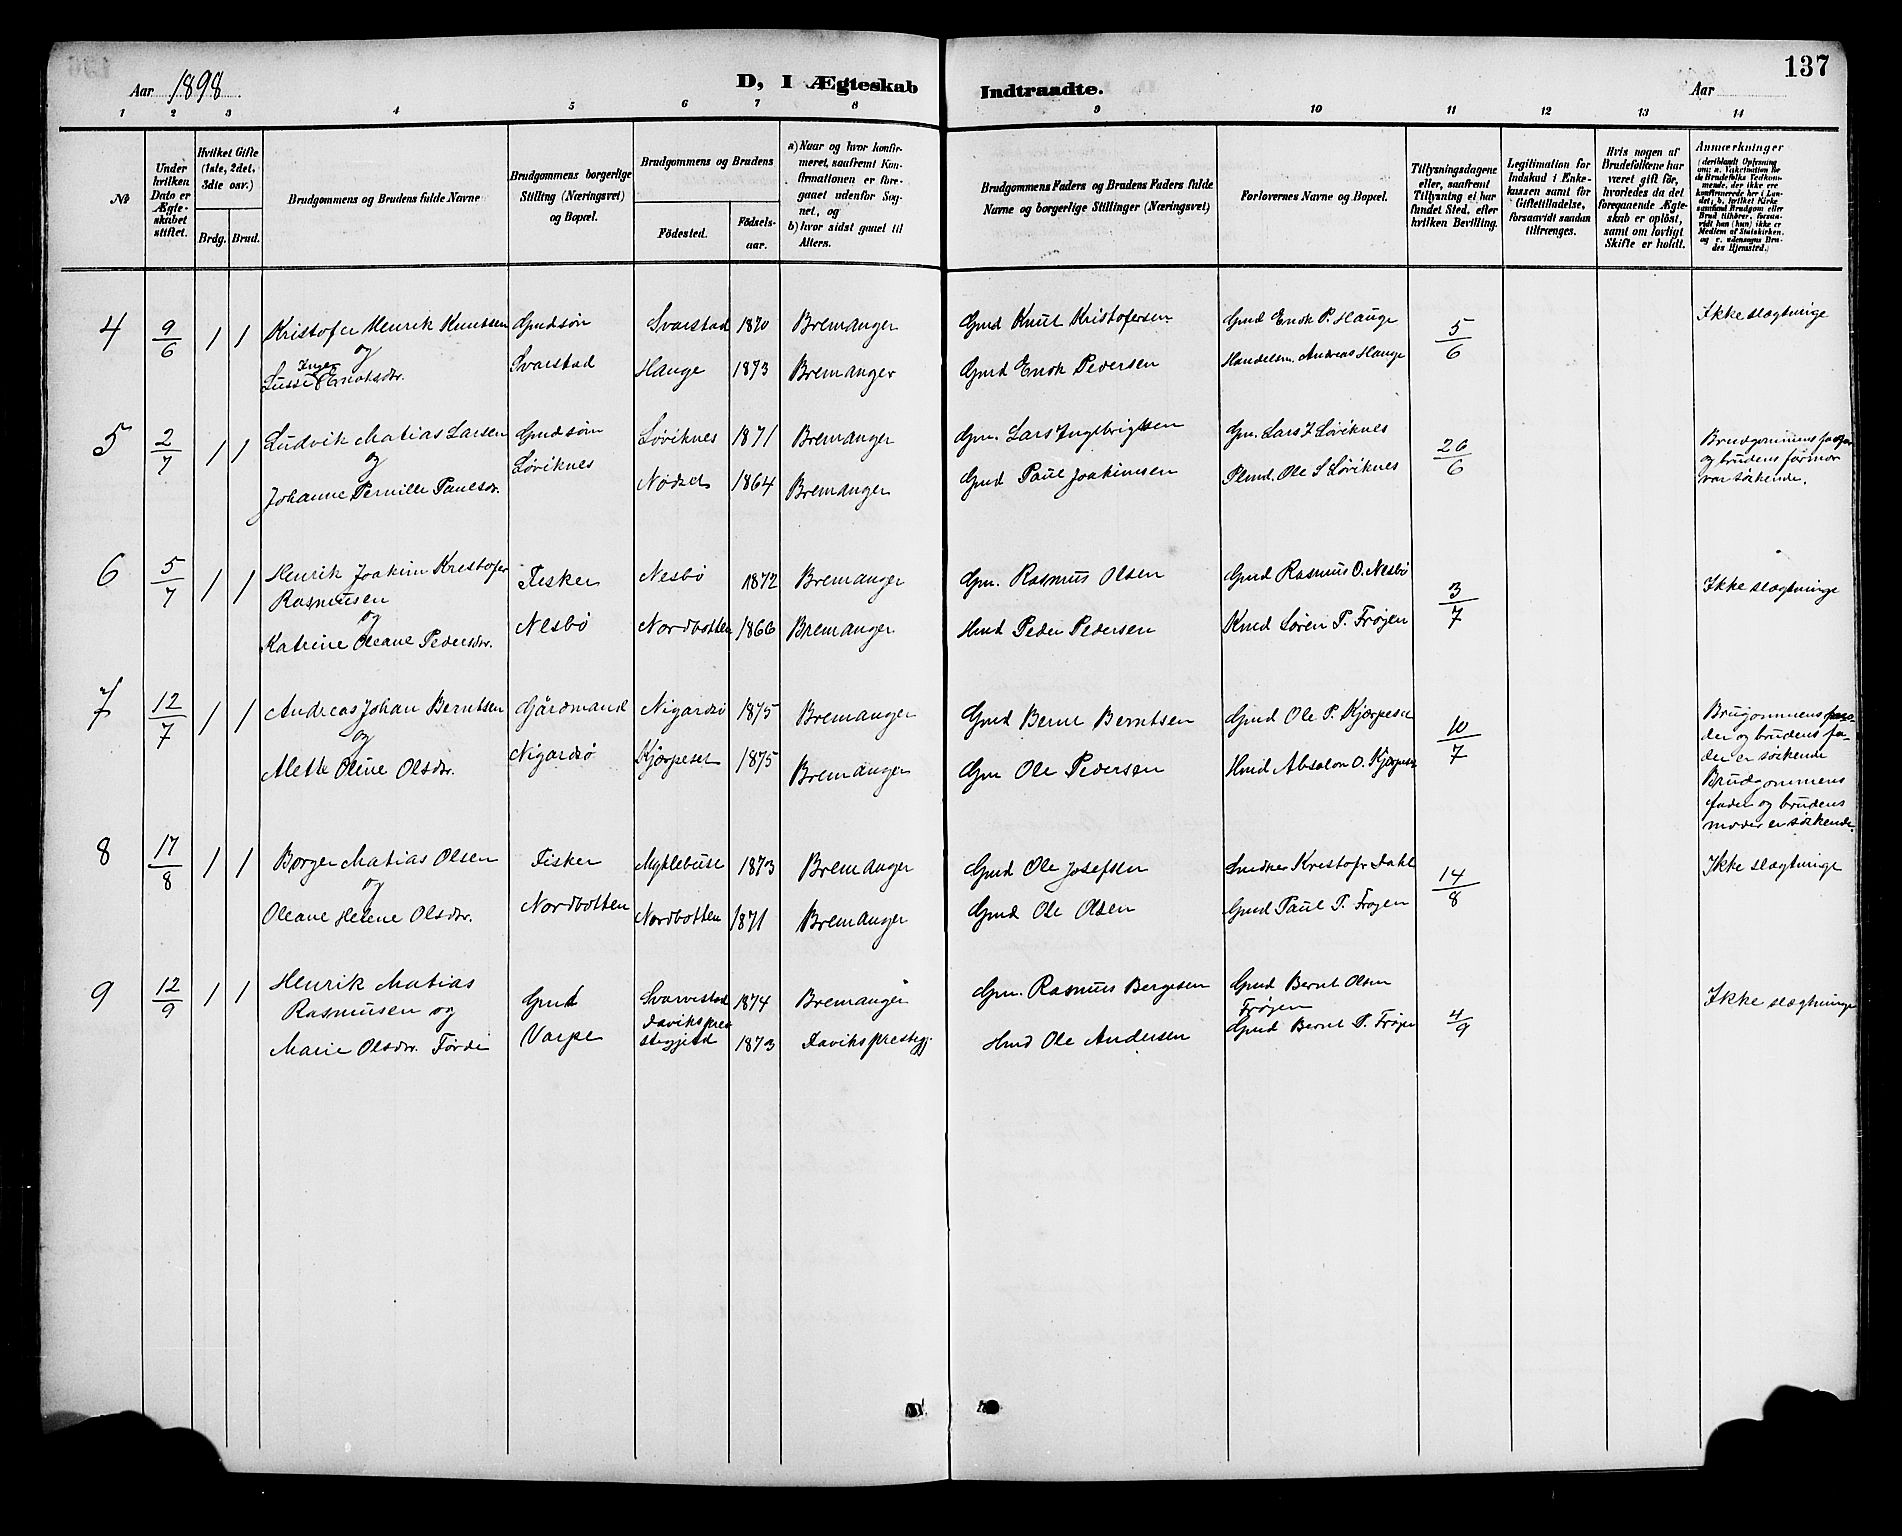 137
Aar 1898
D, I Ægteskab Indtraadte.
Aar
1 2 3 4 5 6 7 8 9 10 11 12 13 14
№
Under hvilken Dato er Ægteskabet stiftet.
Hvilket Gifte (1ste, 2det, 3die osv.)
Brdg. Brud.
Brudgommens og Brudens fulde Navne
Brudgommens borgerlige Stilling (Næringsvei) og Bopæl.
Brudgommens og Brudens
Fødested.
Fødselsaar.
a) Naar og hvor konfirmeret, saafremt Konfirmationen er foregaaet udenfor Sognet, og
b) hvor sidst gaaet til Alters.
Brudgommens Faders og Brudens Faders fulde Navne og borgerlige Stillinger (Næringsvei)
Forlovernes Navne og Bopæl.
Tillysningsdagene eller, saafremt Tillysning ei har fundet Sted, efter hvilken Bevilling.
Legitimation for Indskud i Enkekassen samt for Giftetilladelse, forsaavidt saadan tiltrænges.
Hvis nogen af Brudefolkene har været gift før, hvorledes da det foregaaende Ægteskab er opløst, samt om lovligt Skifte er holdt.
Anmærkninger
4 9/6 1 1 Kristofer Henrik Knutsen Gmdsøn Svarstad 1870 Bremanger Gmd Knut Kristofersen Gmd Enok P. Hauge 5/6 Ikke slægtninge
og
Inger
Svarstad Hauge 1873 Bremanger Gmd Enok Pedersen Handelsm. Andreas Hauge
5 2/7 1 1 Ludvik Matias Larsen Gmdsøn Løviknes 1871 Bremanger Gm. Lars Ingebrigtsen Gm. Lars I Løviknes 26/6 Brudgommens farfar
og Løviknes og brudens farmor
Johanne Pernille Paulsdr. Nødset 1864 Bremanger Gmd Paul Joakimsen Plmd. Ole S Løviknes var søskende.
6 5/7 1 1 Henrik Joakim Kristofer Fisker Nesbö 1872 Bremanger Gm. Rasmus Olsen Gmd Rasmus O. Nesbö 3/7 Ikke slægtninge
Rasmusen
og
Katrine Oleane Pedersdr. Nesbö Nordbotten 1866 Bremanger Hmd Peder Pedersen Kmd Søren P. Frøjen
7 12/7 1 1 Andreas Johan Berntsen Gårdmand Nigardsö 1875 Bremanger Gmd Bernt Berntsen Gmd Ole P. Kjærpeset 10/7 Brugommens fa-
og der og brudens fa-
Mette Oline Olsdr. Nigardsö Kjærpeset 1875 Bremanger Gm Ole Pedersen Hmd Absalon O. Kjærpeset der er søskende
Brudgommens
fader og brudens
moder er søskende.
8 17/8 1 1 Børger Matias Olsen Fisker Myklebust 1873 Bremanger Gmd Ole Josefsen Snedker Kristofr Dahl 14/8 Ikke slægtninge
og
Oleane Helene Olsdr. Nordbotten Nordbotten 1871 Bremanger Gmd Ole Olsen Gmd Paul P. Frøyen
9 12/9 1 1 Henrik Matias Gmd Svarvestad 1874 Bremanger Gm. Rasmus Bergesen Gmd Bernt Olsen 4/9 Ikke slægtninge
Rasmusen og Daviks pres Frøjen
Marie Olsdr. Førde Varpe stegjeld 1873 Daviks prestegj. Hmd Ole Andersen Gmd Bernt P. Frøjen